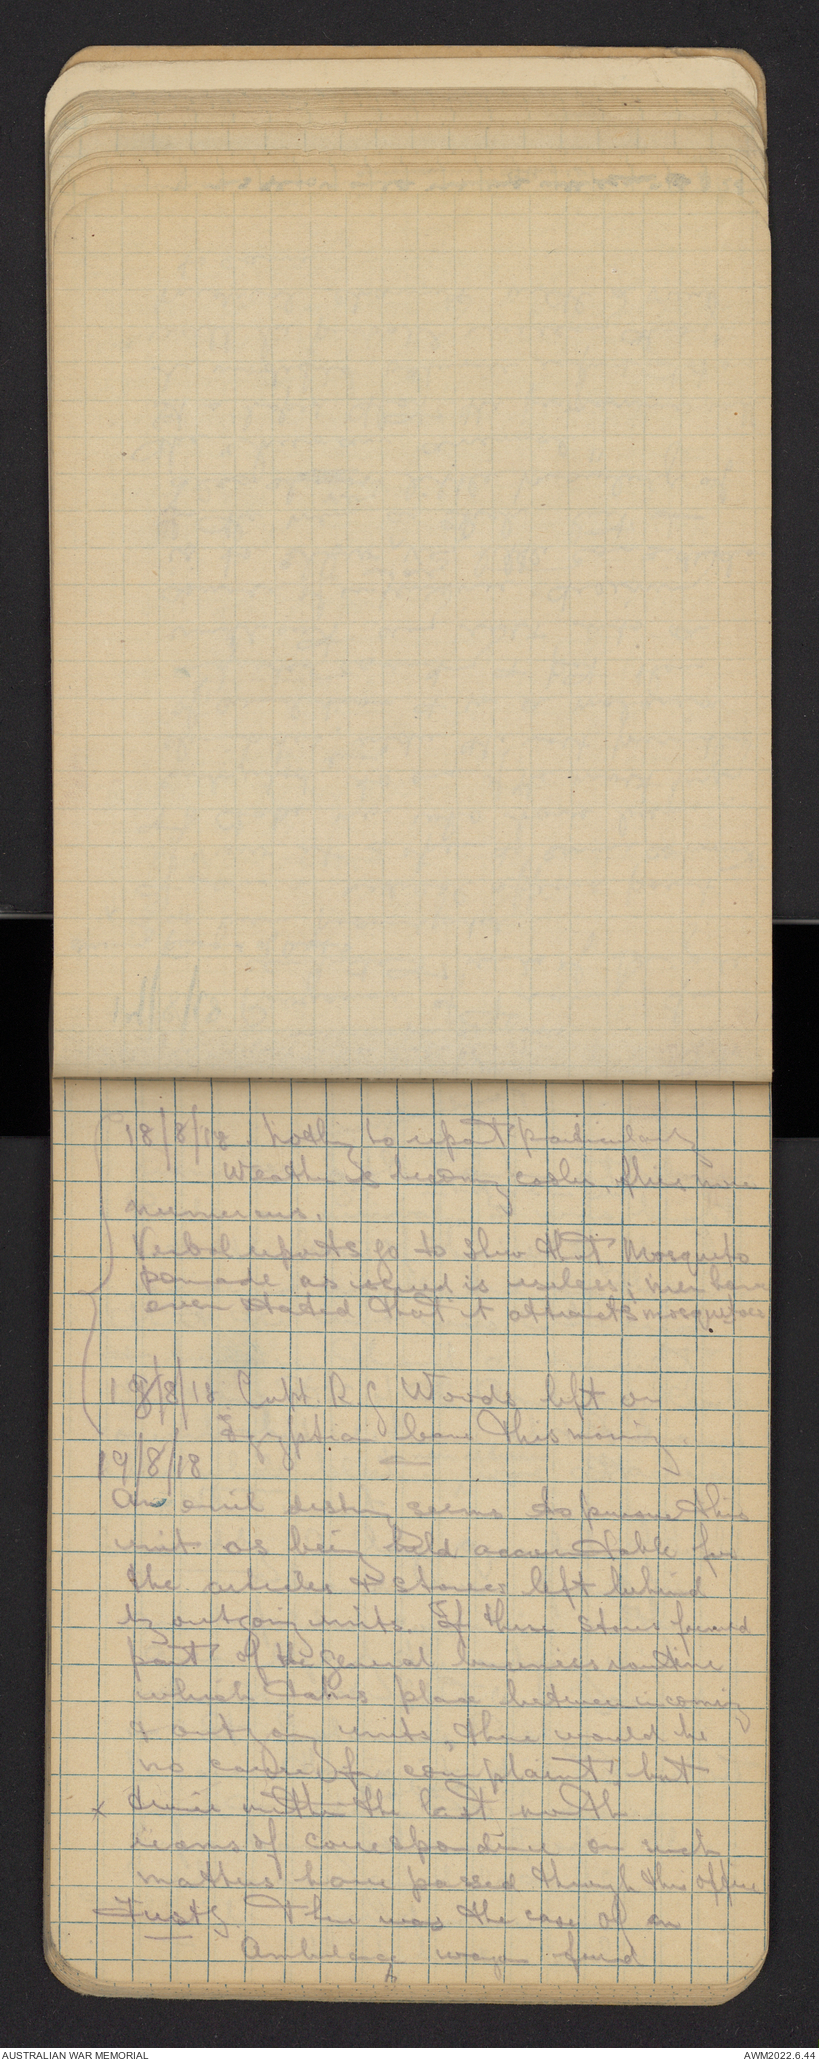 18/8/18. Nothing to report particularly
Weather is becoming cooler, flies more
numerous.
Verbal reports go to shew that Mosquito
pomade as issued is useless; men have
even stated that it attracts mosquitoes
18/8/18 Capt. R. G Woods left on
Egyptian leave this morning
19/8/18
An evil destiny seems to pursue this
unit as being held accountable for
the articles & stores left behind
by outgoing units. If these stores formed
part of the general business routine
which takes place between incoming
& outgoing units, there would be
no cause for complaint, but
x within the last month
reams of correspondence on such
matters have passed through this office
Firstly There was the case of an
Ambulance wagon found
AUSTRALIAN WAR MEMORIAL
AWM2022.6.44